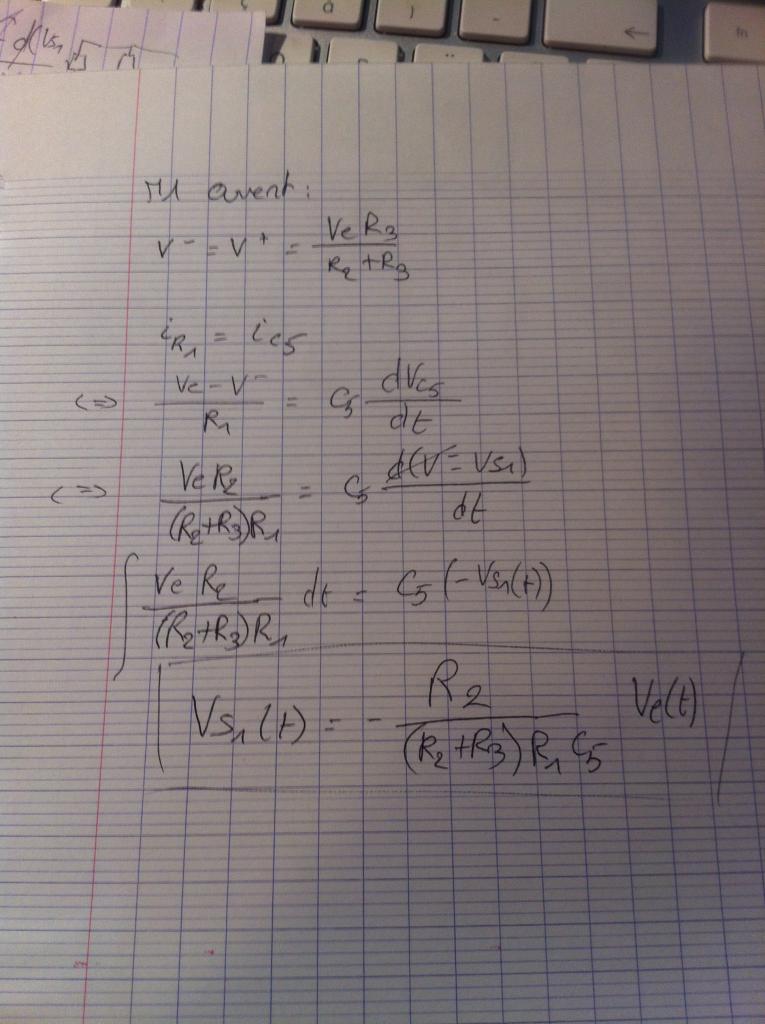 d(Vs1
M1 avant :
V⁻ = V⁺ = Ve R3 / (R2 + R3)
iR1 = iC5
<=> (Ve - V⁻) / R1 = C5 dVC5 / dt
<=> Ve R2 / ((R2+R3)R1) = C5 d(V⁻ - Vs1) / dt
∫ Ve R2 / ((R2+R3)R1) dt = C5 (-Vs1(t))
Vs1(t) = - R2 / ((R2+R3) R1 C5) Ve(t)